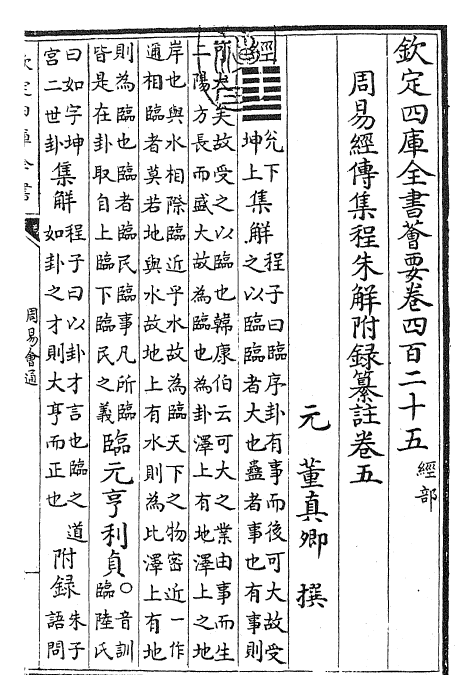 欽定四庫全書薈要卷四百二十五 經部
周易經傳集程朱解附録纂註卷五
元 董真卿 撰
經 兌下坤上 集解 程子曰臨序卦有事而後可大故受之以臨臨者大也蠱者事也有事則
可大矣故受之以臨也韓康伯云可大之業由事而生
二陽方長而盛大故為臨也為卦澤上有地澤上之地
岸也與水相際臨近乎水故為臨天下之物密近一作
通相臨者莫若地與水故地上有水則為比澤上有地
則為臨也臨者臨民臨事凡所臨皆是在卦取自上臨下臨民之義 臨元亨利貞○音訓臨陸氏
曰如字坤宮二世卦 集解 程子曰以卦才言也臨之道如卦之才則大亨而正也 附録 朱子語問
欽定四庫全書
周易會通